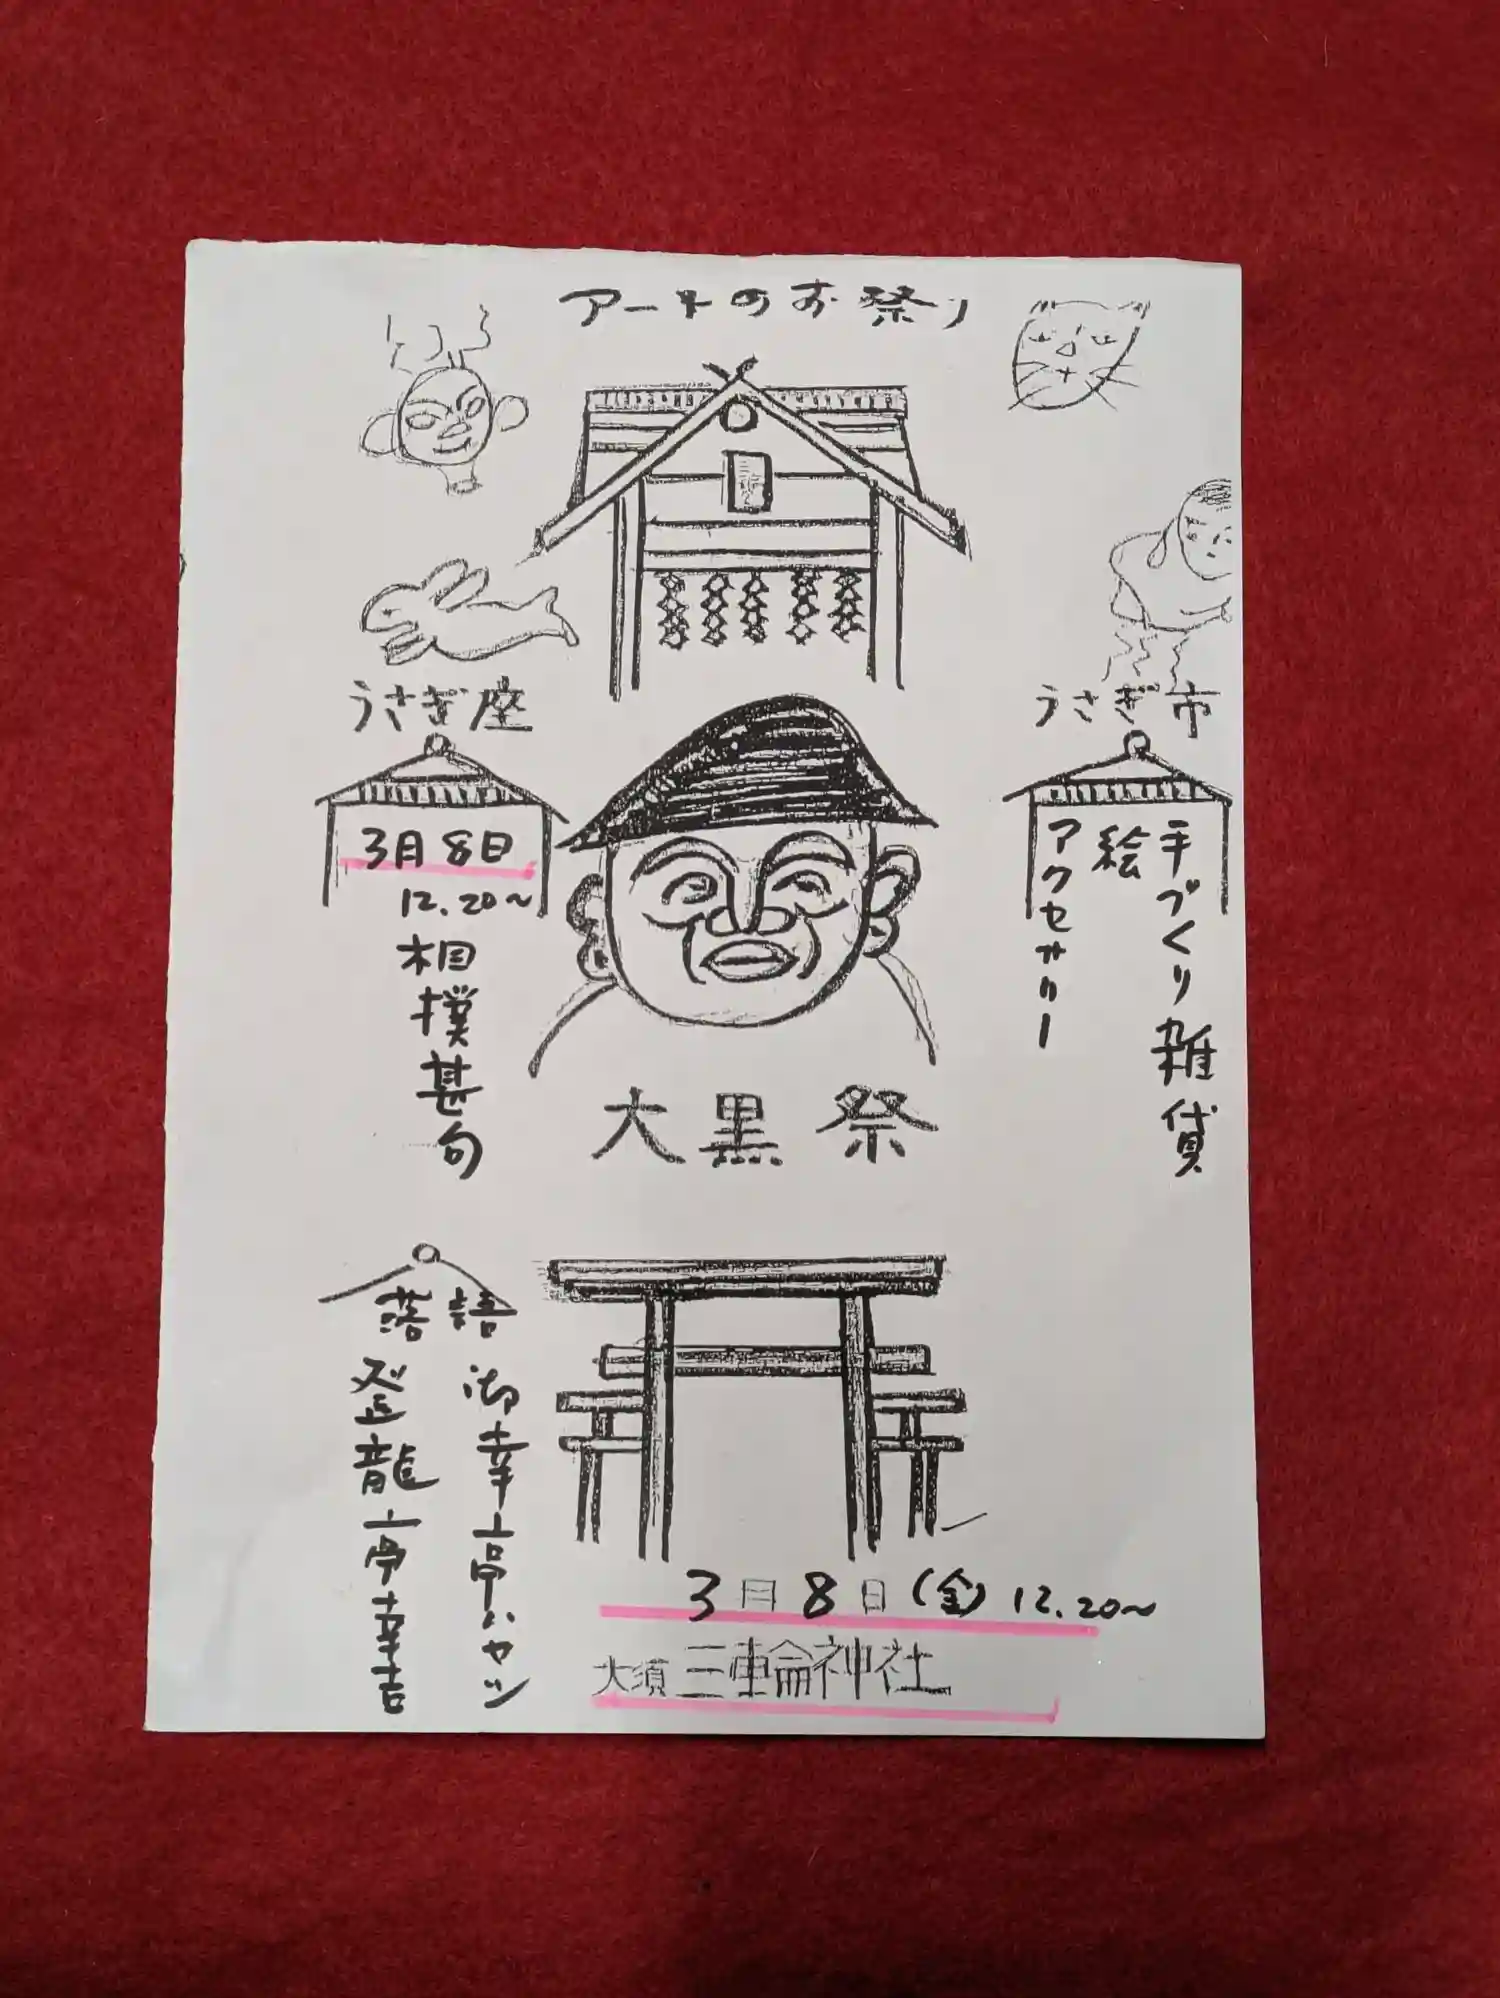 アートのお祭り
うさぎ座
3月8日
12.20~
相撲甚句
うさぎ市
手づくり雑貨
絵
アクセサリー
大黒祭
落語
御幸亭ハヤツ
登龍亭幸吉
3月8日(金)12.20~
大須三輪神社